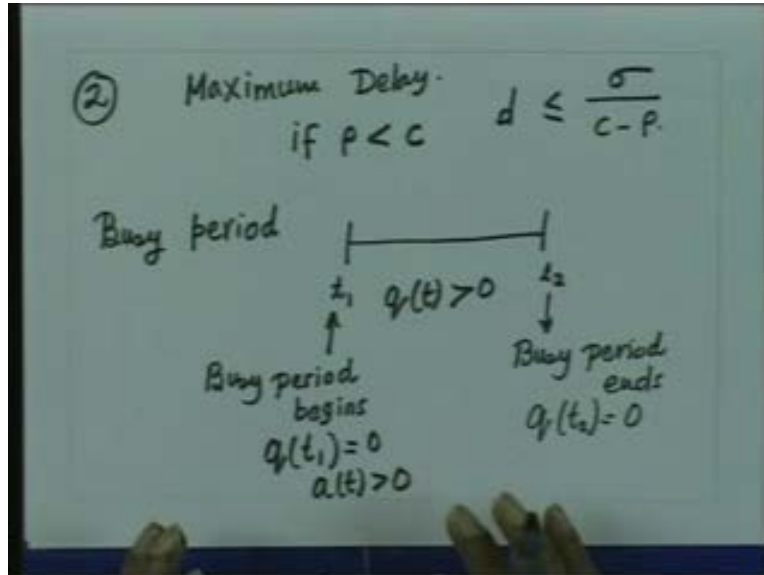 ② Maximum Delay.
if ρ < c d ≤ σ / c - ρ.
Busy period
t₁ q(t) > 0 t₂
Busy period begins
q(t₁) = 0
a(t) > 0
Busy period ends
q(t₂) = 0